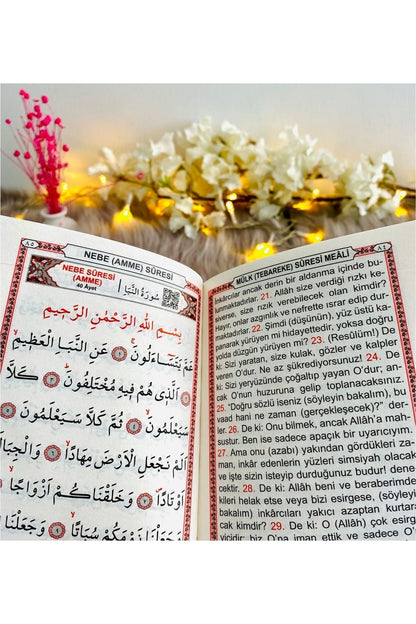 ٨٥ NEBE (AMME) SÛRESİ
NEBE SÛRESİ
(AMME)
40 Ayet
سُورَةُ النَّبَأِ
بِسْمِ اللهِ الرَّحْمٰنِ الرَّحِيمِ
عَمَّ يَتَسَاءَلُونَ ١ عَنِ النَّبَأِ الْعَظِيمِ
اَلَّذِي هُمْ فِيهِ مُخْتَلِفُونَ ٣ كَلَّا
سَيَعْلَمُونَ ٤ ثُمَّ كَلَّا سَيَعْلَمُونَ
اَلَمْ نَجْعَلِ الْاَرْضَ مِهَادًا ٦ وَالْجِبَا
اَوْتَادًا ٧ وَخَلَقْنَاكُمْ اَزْوَاجًا ٨
وَجَعَلْنَا نَوْمَكُمْ سُبَاتًا ٩ وَجَعَلْنَا
MÜLK (TEBAREKE) SÛRESİ MEÂLİ ٨٤
inkârcılar ancak derin bir aldanma içinde bu-
lunmaktadırlar. 21. Allâh size verdiği rızkı ke-
serse, size rızık verebilecek olan kimdir?
Hayır, onlar azgınlık ve nefrette ısrar edip dur-
maktadırlar. 22. Şimdi (düşünün), yüz üstü ka-
panarak yürüyen mi hidayettedir, yoksa doğru
yolda düzgün yürüyen mi? 23. (Resûlüm!) De
ki: Sizi yaratan, size kulak, gözler ve kalpler
veren O'dur. Ne az şükrediyorsunuz! 24. De
ki: Sizi yeryüzünde çoğaltıp yayan O'dur, an-
cak O'nun huzuruna gelip toplanacaksınız.
25. "Doğru sözlü iseniz (söyleyin bakalım), bu
vaad hani ne zaman (gerçekleşecek)?" der-
ler. 26. De ki: Onu bilmek, ancak Allâh'a mah-
sustur. Ben ise sadece apaçık bir uyarıcıyım.
27. Ama onu (azabı) yakından gördükleri za-
man, inkâr edenlerin yüzleri simsiyah olacak
ve işte sizin isteyip durduğunuz budur! dene-
cektir. 28. De ki: Allâh beni ve beraberimde-
kileri helak etse veya bizi esirgese, (söyleyin
bakalım) inkârcıları yakıcı azaptan kurtara-
cak kimdir? 29. De ki: O (Allâh) çok esirge-
yicidir, biz O'na iman ettik ve sadece O'